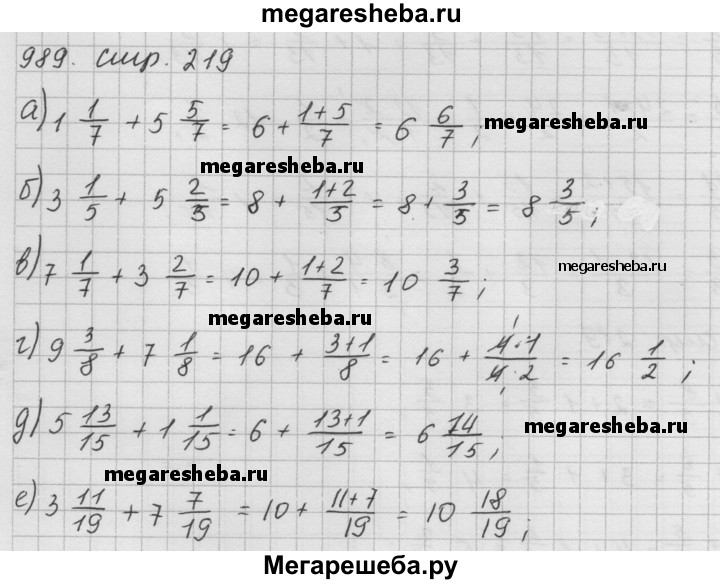 megaresheba.ru
989. стр. 219
а) 1 1/7 + 5 5/7 = 6 + (1+5)/7 = 6 6/7; megaresheba.ru
megaresheba.ru
б) 3 1/5 + 5 2/5 = 8 + (1+2)/5 = 8 + 3/5 = 8 3/5;
в) 7 1/7 + 3 2/7 = 10 + (1+2)/7 = 10 3/7; megaresheba.ru
megaresheba.ru
г) 9 3/8 + 7 1/8 = 16 + (3+1)/8 = 16 + (4·1)/(4·2) = 16 1/2;
д) 5 13/15 + 1 1/15 = 6 + (13+1)/15 = 6 14/15; megaresheba.ru
megaresheba.ru
е) 3 11/19 + 7 7/19 = 10 + (11+7)/19 = 10 18/19;
Мегарешеба.ру